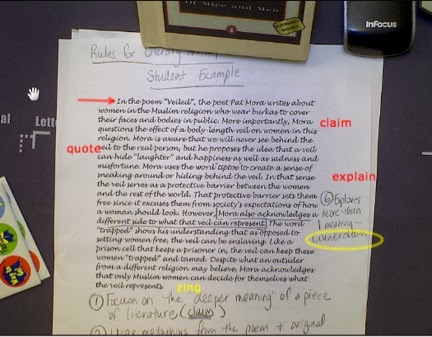 OF MICE AND MEN
InFocus
Rules for Literary
Student Example
In the poem "Veiled", the poet Pat Mora writes about
women in the Muslim religion who wear burkas to cover
their faces and bodies in public. More importantly, Mora
claim
questions the effect of a body-length veil on women in this
religion. Mora is aware that we will never see behind the
quote
veil to the real person, but he proposes the idea that a veil
can hide "laughter" and happiness as well as sadness and
misfortune. Mora uses the word tiptoe to create a sense of
explain
sneaking around or hiding behind the veil. In that sense
the veil serves as a protective barrier between the women
and the rest of the world. That protective barrier sets them
free since it excuses them from society's expectations of how
a woman should look. However, Mora also acknowledges a
different side to what that veil can represent. The word
"trapped" shows his understanding that as opposed to
setting women free, the veil can be enslaving. Like a
prison cell that keeps a prisoner in, the veil can keep these
women "trapped" and tamed. Despite what an outsider
from a different religion may believe, Mora acknowledges
that only Muslim women can decide for themselves what
the veil represents.
⑥ Explores
more than
1 meaning-
zing
① Focus on the "deeper meaning" of a piece
of literature (claim)
metaphors from the poem + original
al
Lette